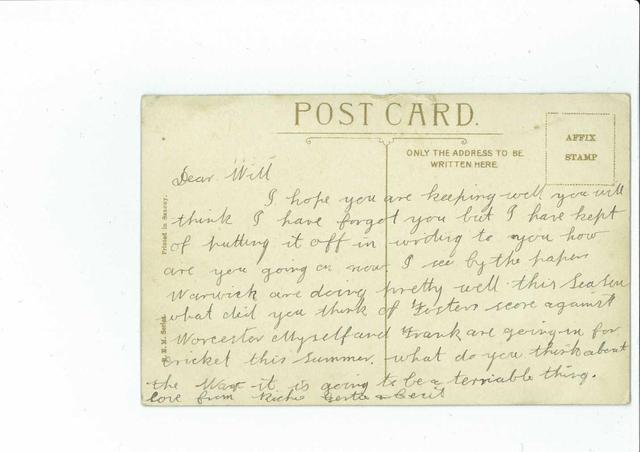 POST CARD.
AFFIX
STAMP
ONLY THE ADDRESS TO BE
WRITTEN HERE.
Printed in Saxony.
Series.
Dear Will
I hope you are keeping well you will
think I have forgot you but I have kept
of putting it off in writing to you how
are you going on now. I see by the papers
Warwick are doing pretty well this Season
what did you think of Fosters score against
Worcester Myself and Frank are going in for
cricket this Summer. what do you think about
the War it is going to be a terriable thing.
love from Gertie & Cecil